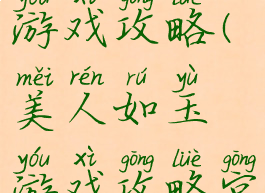 yóu xì gōng lüè
游戏攻略(
měi rén rú yù
美人如玉
yóu xì gōng lüè gōng
游戏攻略宫